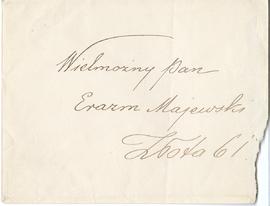 Wielmożny Pan
Erazm Majewski
Złota 61